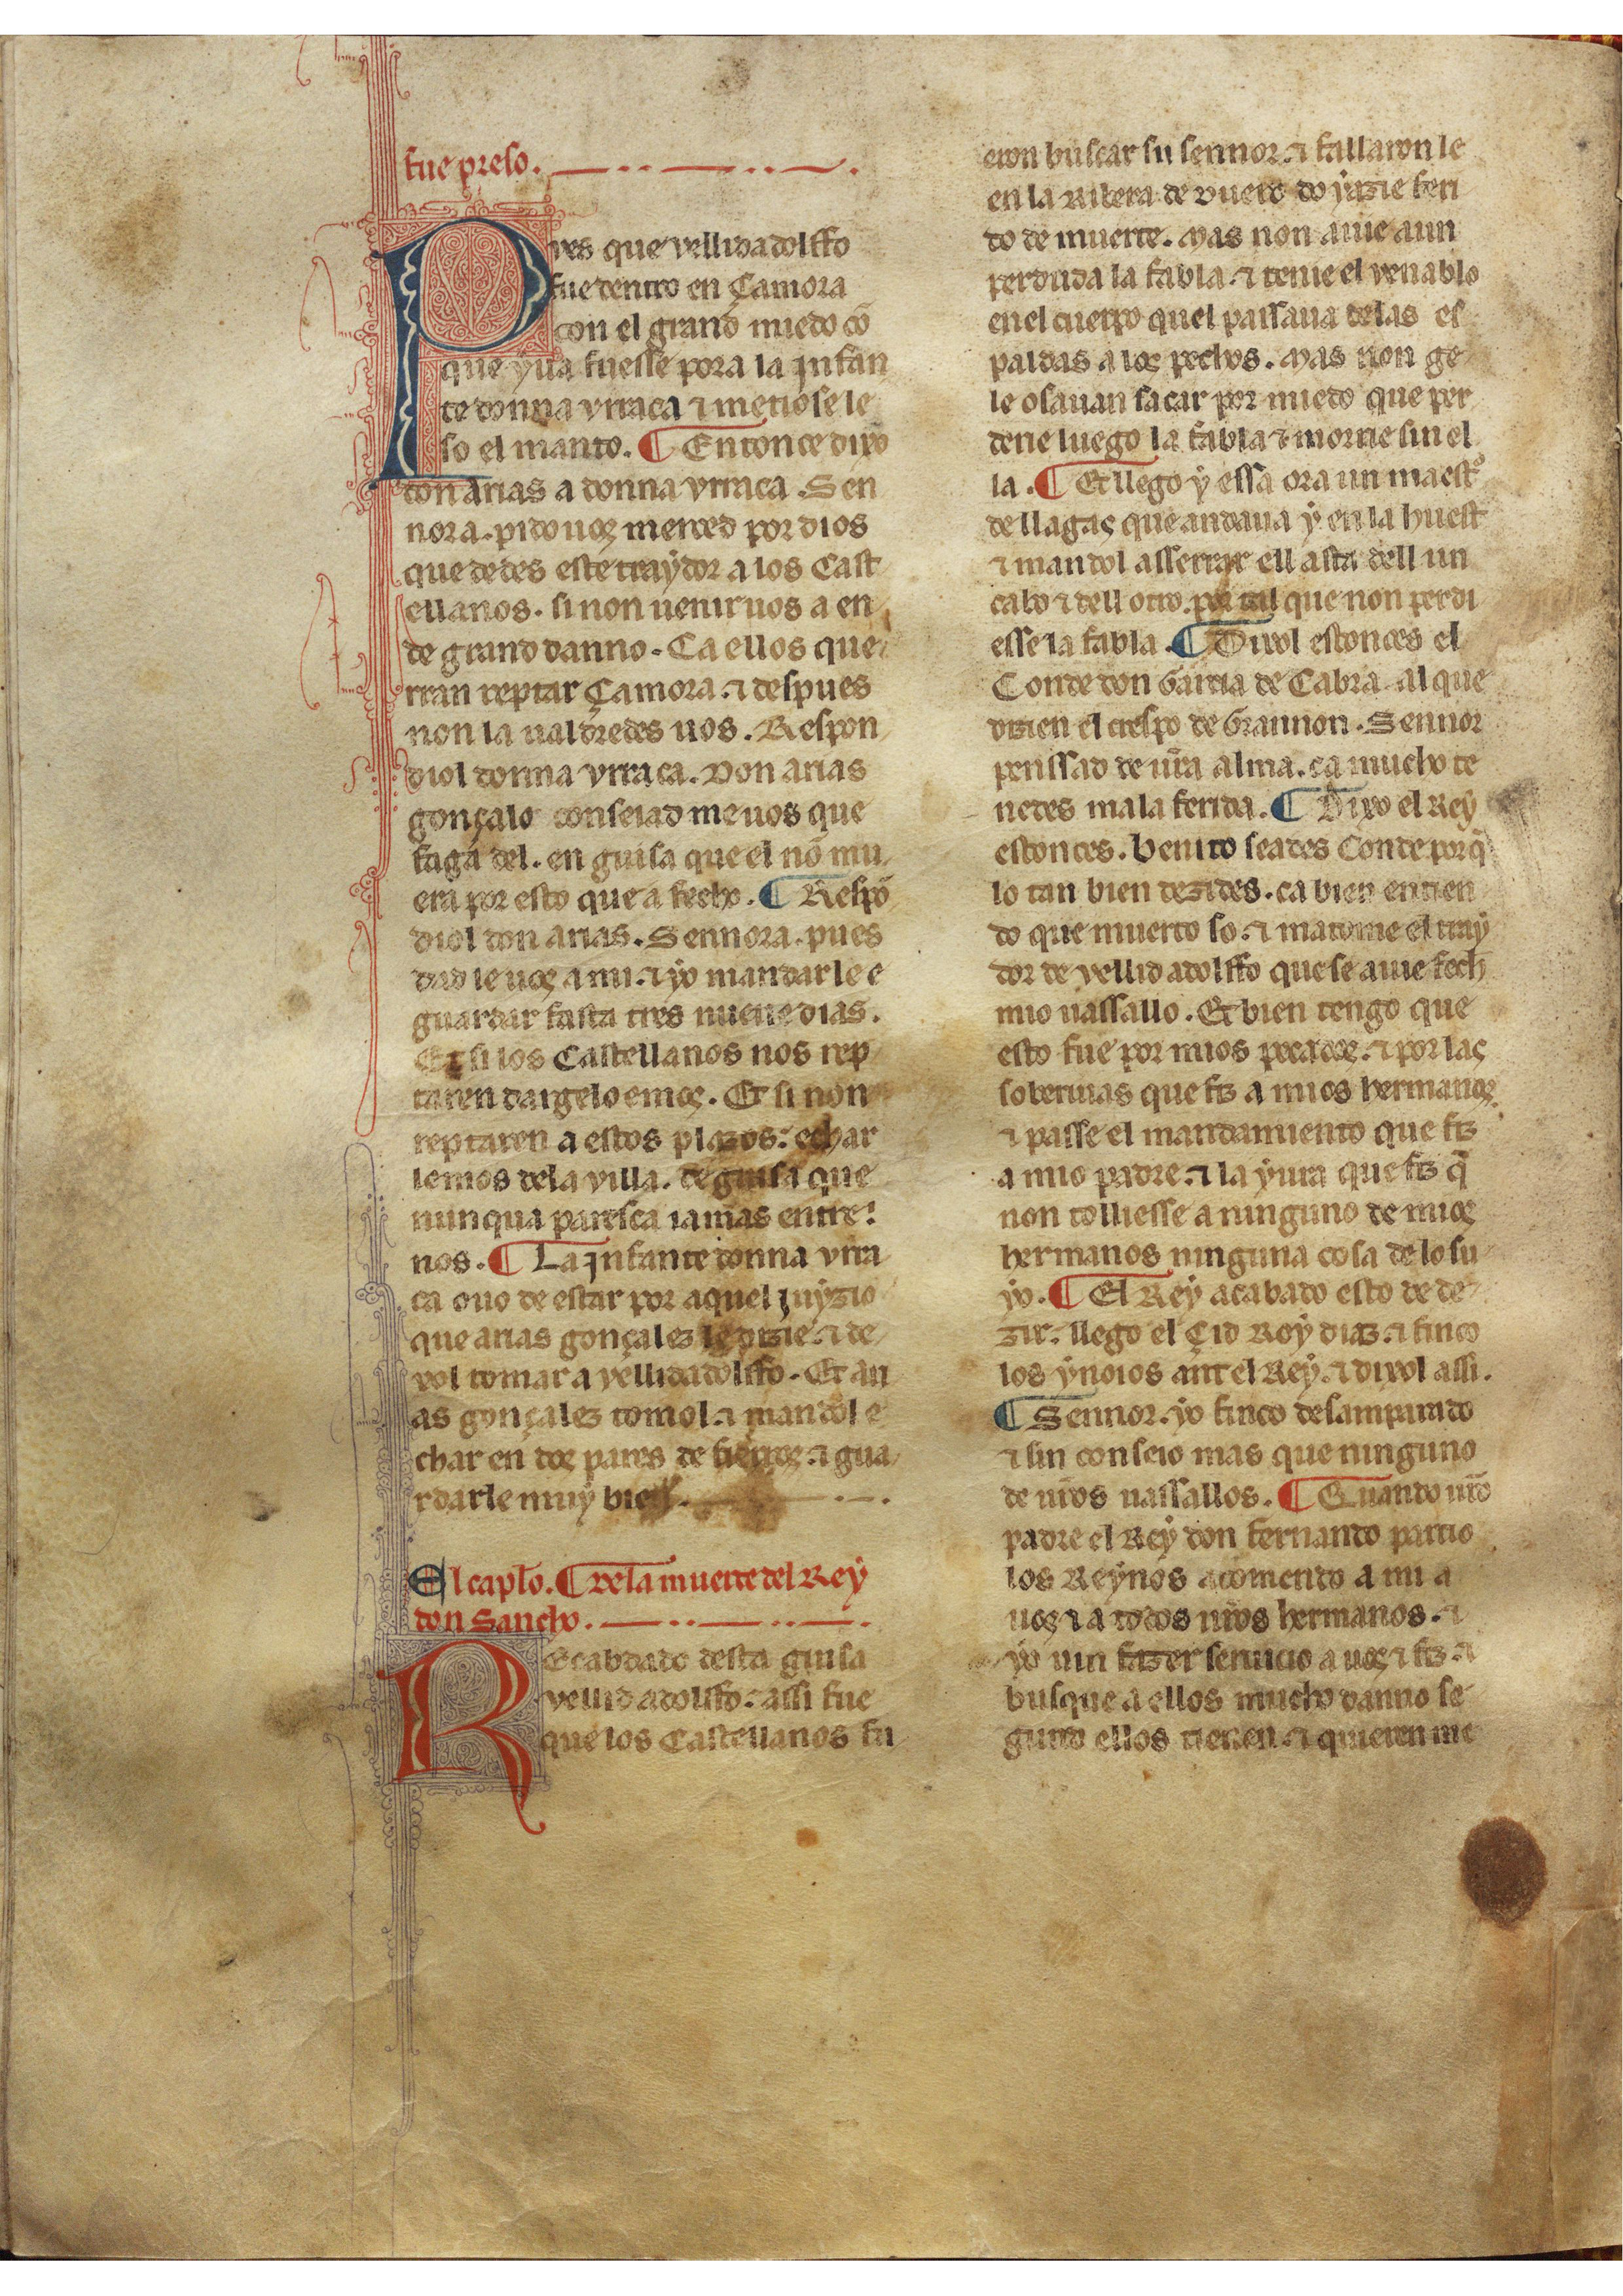 fue preso.
Pues que vellid adolffo
fue dentro en Çamora
con el grand miedo cõ
que yua fuesse pora la Jnfan
te donna vrraca ⁊ metiosele
so el manto. ¶ Entonce dixo
don arias a donna vrraca. Sen
nora. pido uos merced por dios
que dedes este traydor a los Cast
ellanos. si non uenir uos a en
de grand danno. Ca ellos que
rran reptar Çamora. ⁊ despues
non la ualdredes uos. Respon
diol donna vrraca. Don arias
gonçalo conseiad me uos que
faga del. en guisa que el nõ mu
era por esto que a fecho. ¶ Respõ
diol don arias. Sennora. pues
dad le uos a mi. ⁊ yo mandar le e
guardar fasta tres nueue dias.
Et si los Castellanos nos rep
taren dar gelo emos. Et si non
reptaren a estos plazos: echar
lemos dela villa. de guisa que
nunqua paresca iamas entre
nos. ¶ La Jnfante donna vrra
ca ouo de estar por aquel juyzio
que arias gonçalez le dizie. ⁊ de
xol tomar a vellid adolffo. Et ari
as gonçalez tomol. ⁊ mandol e
char en dos pares de fierros ⁊ gua
rdarle muy bien.
El caplo. ¶ Dela muerte del Rey
don Sancho.
Recabdado desta guisa
vellid adolffo. assi fue
que los Castellanos fu
eron buscar su sennor. ⁊ fallaron le
en la Ribera de duero do yazie feri
do de muerte. Mas non auie aun
perduda la fabla. ⁊ tenie el venablo
en el cuerpo quel passaua delas es
paldas a los pechos. Mas non ge
le osauan sacar por miedo que per
derie luego la fabla ⁊ morrie sin el
la. ¶ Et llego y essa ora un maestº
de llagas que andaua y en la huest
⁊ mandol asserrar ell asta dell un
cabo ⁊ dell otro. por tal que non perdi
esse la fabla. ¶ Dixol estonces el
Conde don Garcia de Cabra. al que
dizien el crespo de Grannon. Sennor
penssad de ur̃a alma. ca mucho te
nedes mala ferida. ¶ Dixo el Rey
estonces. Benito seades Conde porq̃
lo tan bien dezides. ca bien entien
do que muerto so. ⁊ matome el tray
dor de vellid adolffo que se auie fech
mio uassallo. Et bien tengo que
esto fue por mios pecados. ⁊ por las
soberuias que fiz a mios hermanos.
⁊ passe el mandamiento que fiz
a mio padre. ⁊ la yura que fiz q̃
non tolliesse a ninguno de mios
hermanos ninguna cosa de lo su
yo. ¶ El Rey acabado esto de de
zir. llego el Çid Roy diaz. ⁊ finco
los ynoios ant el Rey. ⁊ dixol assi.
¶ Sennor. yo finco desamparado
⁊ sin conseio mas que ninguno
de ur̃os uassallos. ¶ Quando ur̃o
padre el Rey don fernando partio
los Reynos acomendo a mi a
uos ⁊ a todos ur̃os hermanos. ⁊
yo uin fazer seruicio a uos ⁊ fiz ⁊
busque a ellos mucho danno se
gund ellos tienen. ⁊ quieren me